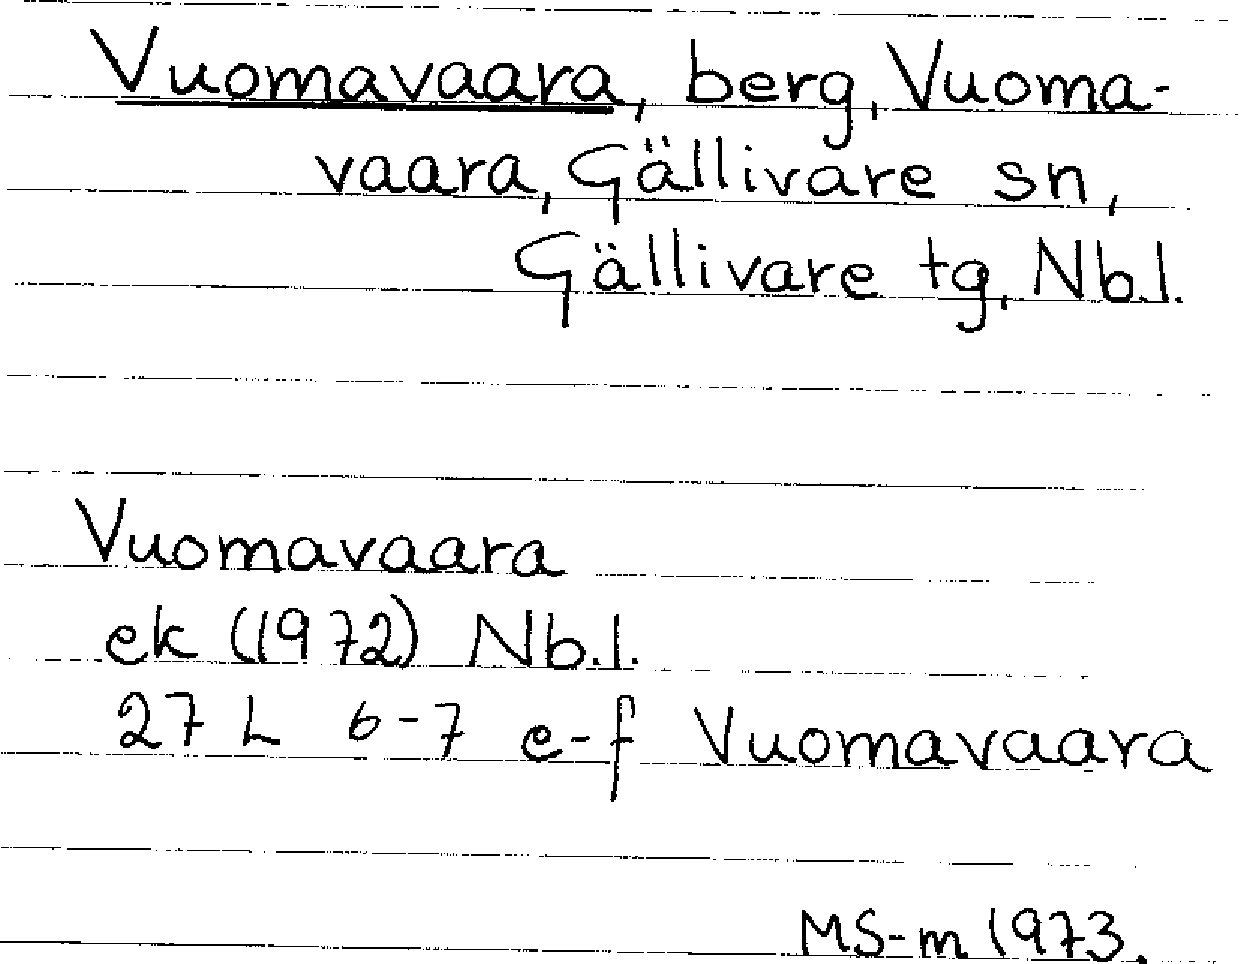 Vuomavaara, berg, Vuoma-
vaara, Gällivare sn,
Gällivare tg, Nb.l.
Vuomavaara
ek (1972) Nb.l.
27 L 6-7 e-f Vuomavaara
MS-m 1973.